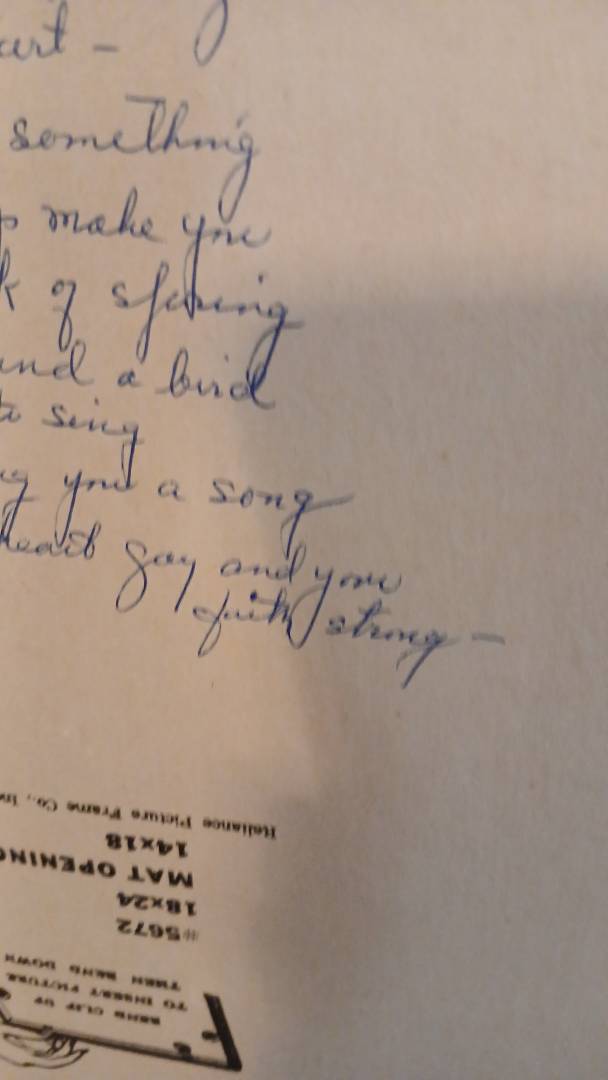 something
make you
of spring
and a bird
to sing
you a song
heart gay and your
faith strong —
Reliance Picture Frame Co., In
14x18
MAT OPENING
18x24
#5672
THEN BEND DOWN
TO INSERT PICTURE
BEND CLIP UP